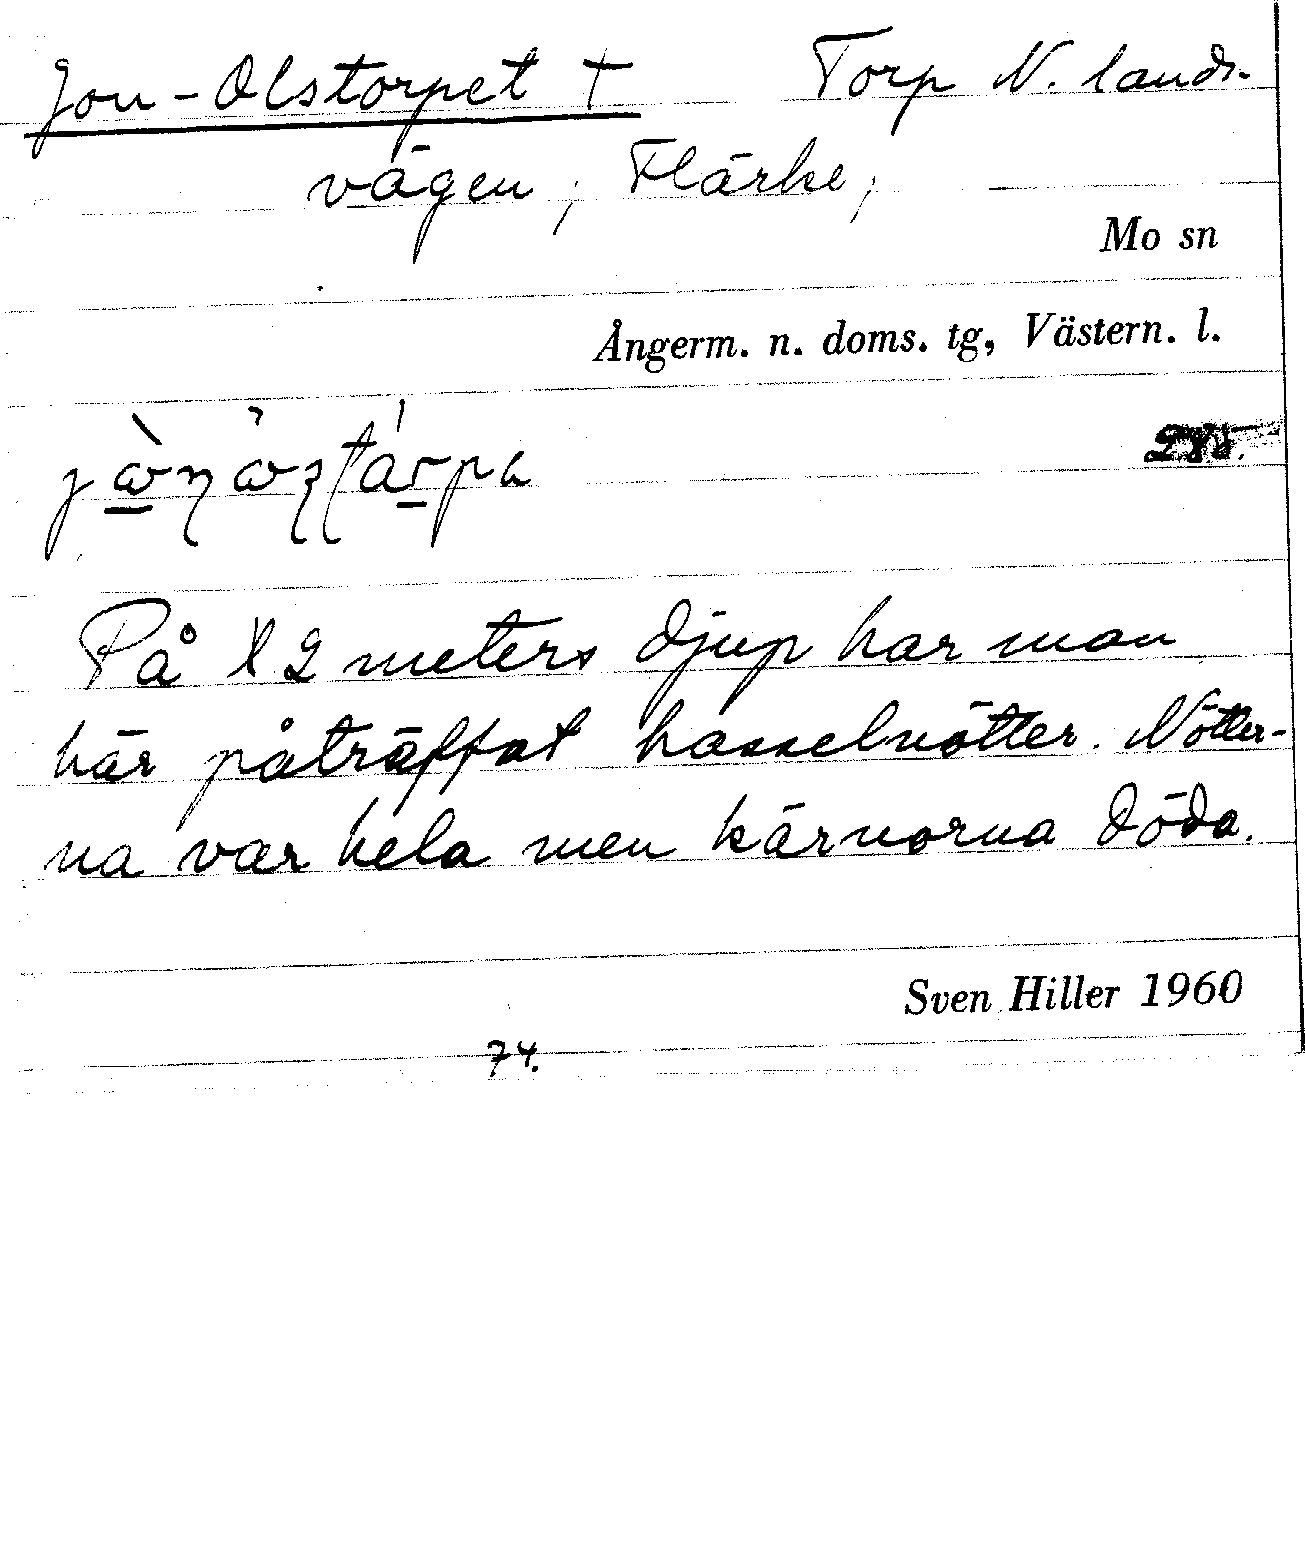 Jon-Olstorpet † Torp N. lands-
vägen, Flärke,
Mo sn
Ångerm. n. doms. tg, Västern. l.
På 2 meters djup har man
här påträffat hasselnötter. Nötter-
na var hela men kärnorna döda.
Sven Hiller 1960
74.